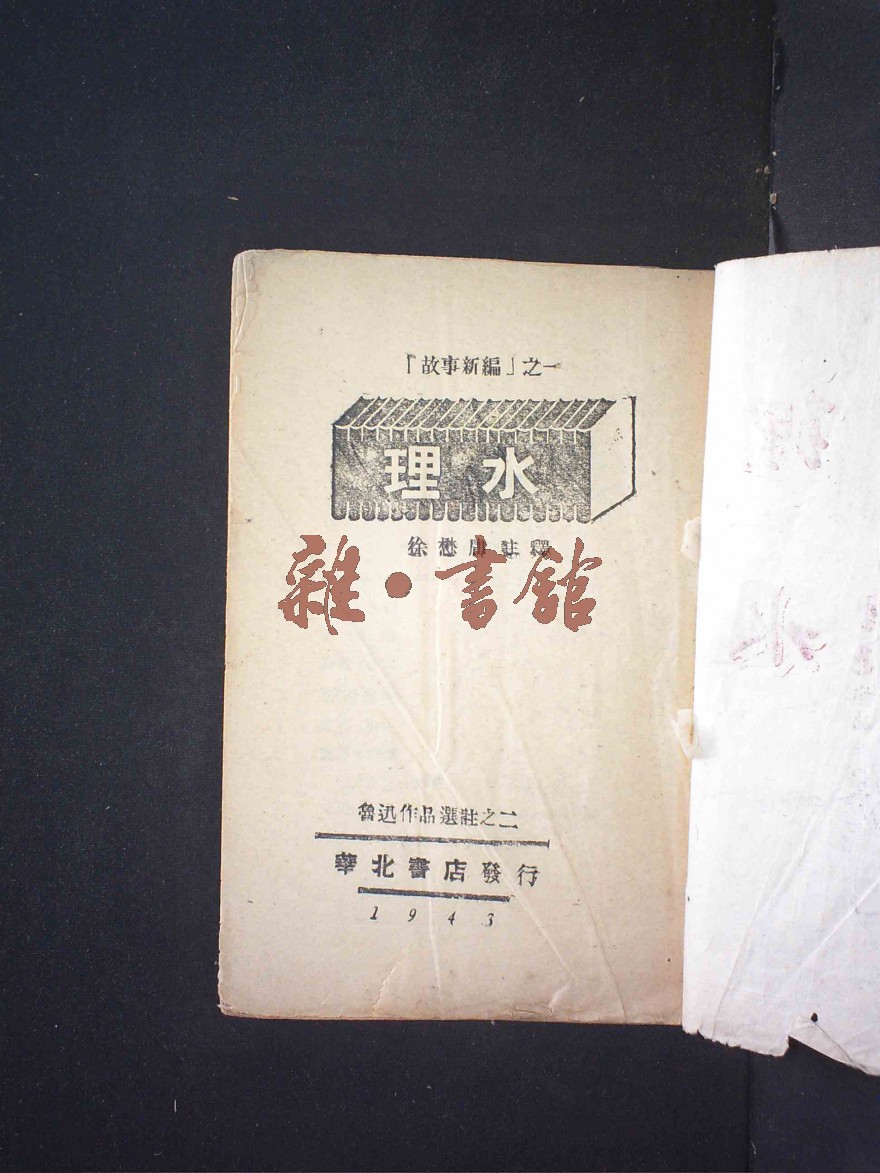 「故事新編」之一
理水
徐懋庸註釋
雜·書館
魯迅作品選註之二
華北書店發行
1943
理
水